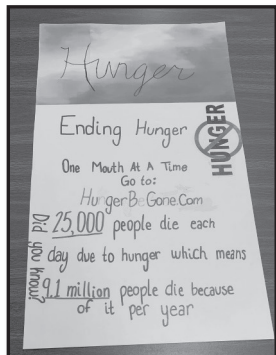 Hunger
Ending Hunger
HUNGER
One Mouth At A Time
Go to:
HungerBeGone.Com
Did you know?
25,000 people die each
day due to hunger which means
9.1 million people die because
of it per year